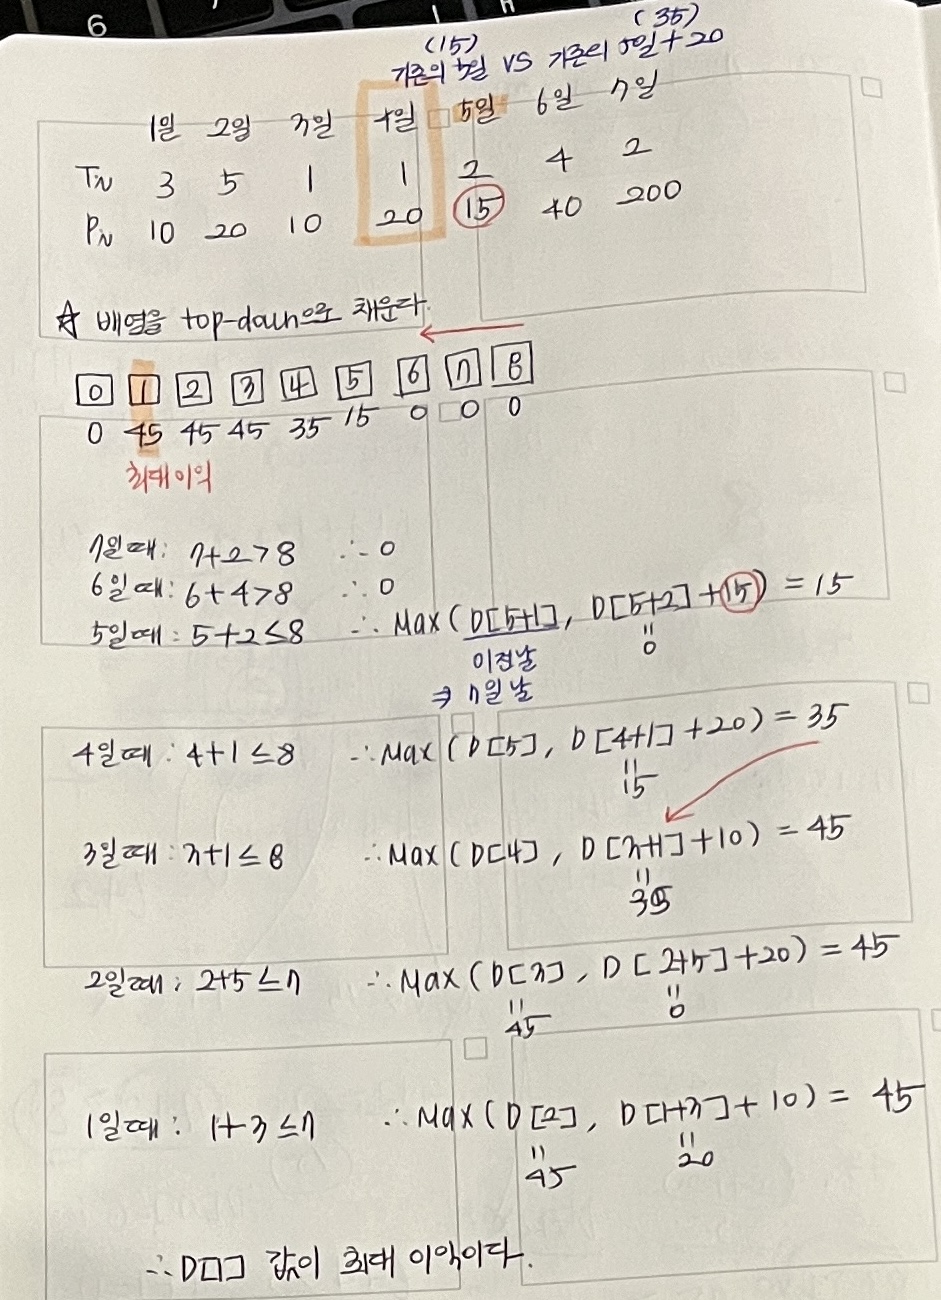 6
(15) (35)
기존의 5일 VS 기존의 5일+20
1일 2일 3일 4일 5일 6일 7일
TN 3 5 1 1 2 4 2
PN 10 20 10 20 15 40 200
☆ 배열을 top-down으로 채운다.
0 1 2 3 4 5 6 7 8
0 45 45 45 35 15 0 0 0
최대이익
7일때: 7+2>8 ∴ 0
6일때: 6+4>8 ∴ 0
5일때: 5+2≤8 ∴ Max(D[5+1], D[5+2]+15) = 15
이전날 = 0
⇒ 7일날
4일때: 4+1≤8 ∴ Max(D[5], D[4+1]+20) = 35
= 15
3일때: 3+1≤8 ∴ Max(D[4], D[3+1]+10) = 45
= 35
2일때: 2+5≤7 ∴ Max(D[3], D[2+5]+20) = 45
= 45 = 0
1일때: 1+3≤7 ∴ Max(D[2], D[1+3]+10) = 45
= 45 = 20
∴ D[1] 값이 최대 이익이다.